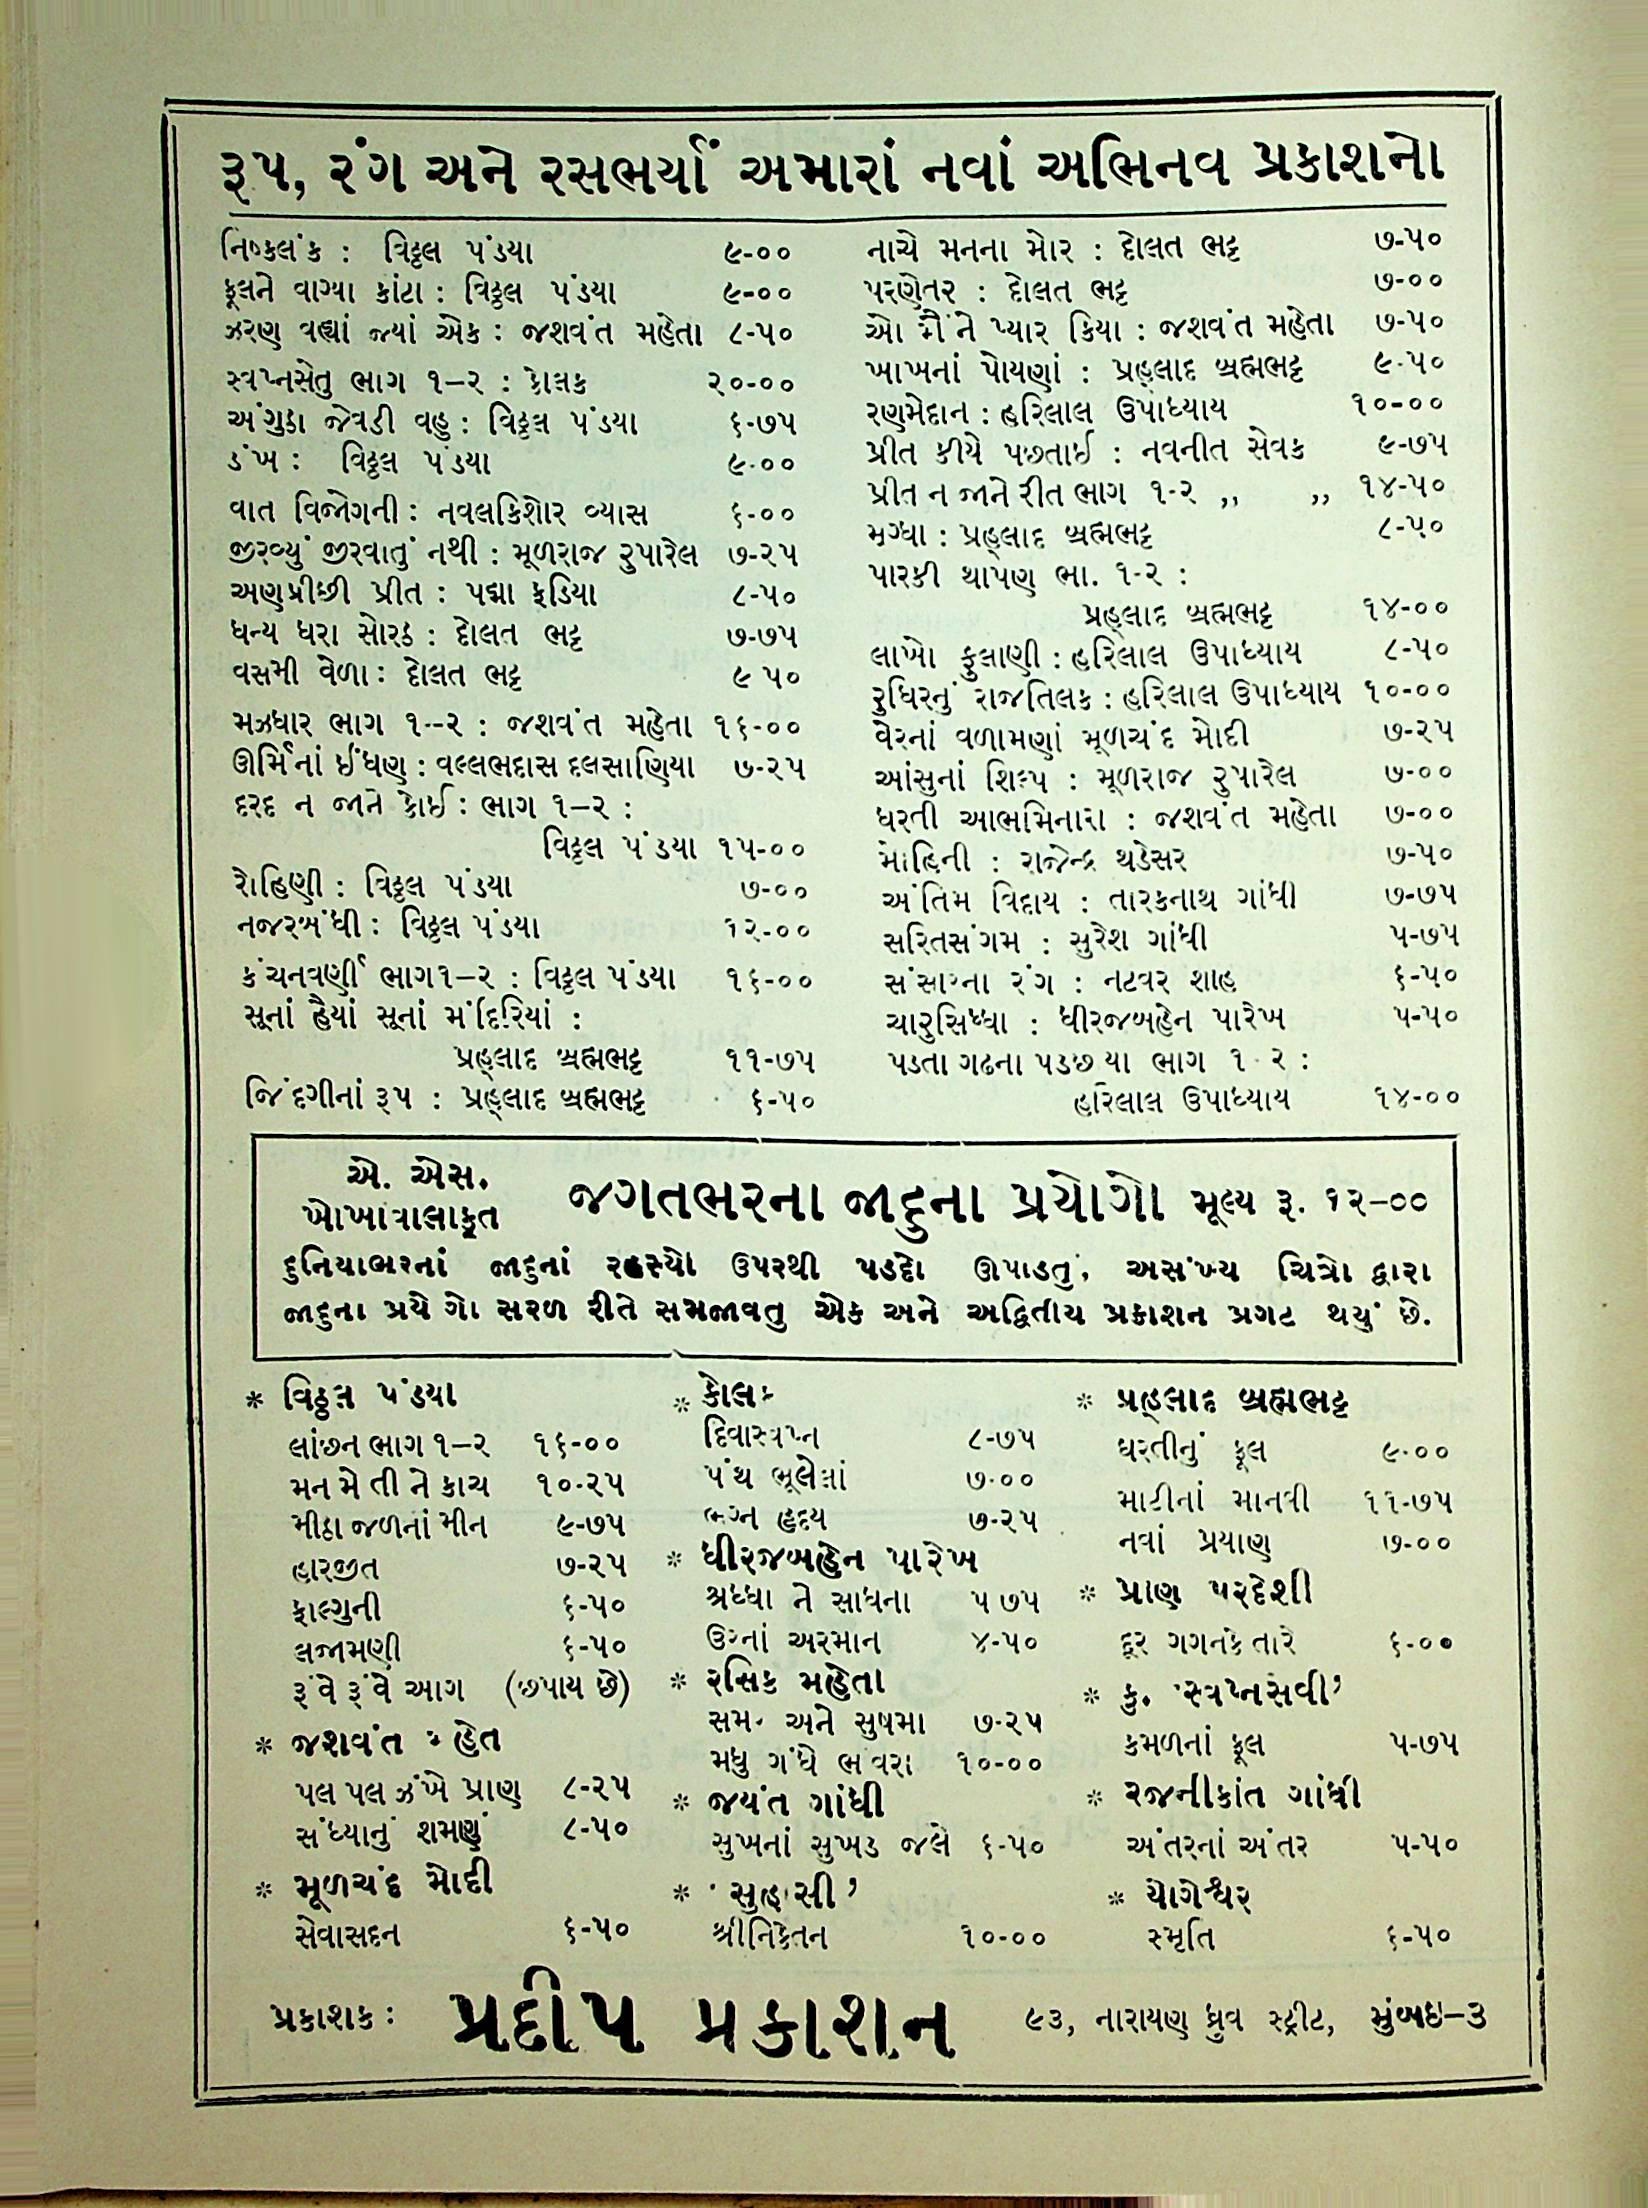 રૂપ, રંગ અને રસભર્યાં અમારાં નવાં અભિનવ પ્રકાશનો
નિષ્કલંક : વિઠ્ઠલ પંડયા ૯-૦૦
ફૂલને વાગ્યા કાંટા : વિઠ્ઠલ પંડયા ૯-૦૦
ઝરણ વહ્યાં જ્યાં એક : જશવંત મહેતા ૮-૫૦
સ્વપ્નસેતુ ભાગ ૧–૨ : કોલક ૨૦-૦૦
અંગુઠા જેવડી વહુ : વિઠ્ઠલ પંડયા ૬-૭૫
ડંખ : વિઠ્ઠલ પંડયા ૯-૦૦
વાત વિજોગની : નવલકિશોર વ્યાસ ૬-૦૦
જીરવ્યું જીરવાતું નથી : મૂળરાજ રુપારેલ ૭-૨૫
અણપ્રીછી પ્રીત : પદ્મા ફડિયા ૮-૫૦
ધન્ય ધરા સોરઠ : દોલત ભટ્ટ ૭-૭૫
વસમી વેળા : દોલત ભટ્ટ ૯ ૫૦
મઝધાર ભાગ ૧--૨ : જશવંત મહેતા ૧૬-૦૦
ઊર્મિનાં ઈંધણ : વલ્લભદાસ દલસાણિયા ૭-૨૫
દરદ ન જાને કોઈ : ભાગ ૧–૨ :
વિઠ્ઠલ પંડયા ૧૫-૦૦
રોહિણી : વિઠ્ઠલ પંડયા ૭-૦૦
નજરબંધી : વિઠ્ઠલ પંડયા ૧૨-૦૦
કંચનવર્ણી ભાગ ૧–૨ : વિઠ્ઠલ પંડયા ૧૬-૦૦
સૂનાં હૈયાં સૂનાં મંદિરિયાં :
પ્રહ્લાદ બ્રહ્મભટ્ટ ૧૧-૭૫
જિંદગીનાં રૂપ : પ્રહ્લાદ બ્રહ્મભટ્ટ ૬-૫૦
નાચે મનના મોર : દોલત ભટ્ટ ૭-૫૦
પરણેતર : દોલત ભટ્ટ ૭-૦૦
ઓ મૈંને પ્યાર કિયા : જશવંત મહેતા ૭-૫૦
ખાખનાં પોયણાં : પ્રહ્લાદ બ્રહ્મભટ્ટ ૯-૫૦
રણમેદાન : હરિલાલ ઉપાધ્યાય ૧૦-૦૦
પ્રીત કીયે પછતાઈ : નવનીત સેવક ૯-૭૫
પ્રીત ન જાને રીત ભાગ ૧-૨ ,, ,, ૧૪-૫૦
મુગ્ધા : પ્રહ્લાદ બ્રહ્મભટ્ટ ૮-૫૦
પારકી થાપણ ભા. ૧-૨ :
પ્રહ્લાદ બ્રહ્મભટ્ટ ૧૪-૦૦
લાખો ફુલાણી : હરિલાલ ઉપાધ્યાય ૮-૫૦
રુધિરનું રાજતિલક : હરિલાલ ઉપાધ્યાય ૧૦-૦૦
વેરનાં વળામણાં મૂળચંદ મોદી ૭-૨૫
આંસુનાં શિલ્પ : મૂળરાજ રુપારેલ ૭-૦૦
ધરતી આભમિનારા : જશવંત મહેતા ૭-૦૦
મોહિની : રાજેન્દ્ર થડેસર ૭-૫૦
અંતિમ વિદાય : તારકનાથ ગાંધી ૭-૭૫
સરિતસંગમ : સુરેશ ગાંધી ૫-૭૫
સંસારના રંગ : નટવર શાહ ૬-૫૦
ચારુસિધ્ધા : ધીરજબહેન પારેખ ૫-૫૦
પડતા ગઢના પડછયા ભાગ ૧-૨ :
હરિલાલ ઉપાધ્યાય ૧૪-૦૦
એ. એસ.
ખોખાંવાલાકૃત જગતભરના જાદુના પ્રયોગો મૂલ્ય રૂ. ૧૨–૦૦
દુનિયાભરનાં જાદુનાં રહસ્યો ઉપરથી પડદો ઊપાડતું, અસંખ્ય ચિત્રો દ્વારા
જાદુના પ્રયેગો સરળ રીતે સમજાવતુ એક અને અદ્વિતીય પ્રકાશન પ્રગટ થયું છે.
* વિઠ્ઠલ પંડયા
લાંછન ભાગ ૧–૨ ૧૬-૦૦
મન મેતી ને કાચ ૧૦-૨૫
મીઠા જળનાં મીન ૯-૭૫
હારજીત ૭-૨૫
ફાલ્ગુની ૬-૫૦
લજામણી ૬-૫૦
રૂંવે રૂંવે આગ (છપાય છે)
* જશવંત મહેતા
પલ પલ ઝંખે પ્રાણ ૮-૨૫
સંધ્યાનું શમણું ૮-૫૦
* મૂળચંદ મોદી
સેવાસદન ૬-૫૦
* કોલક
દિવાસ્વપ્ન ૮-૭૫
પંથ ભૂલેલાં ૭-૦૦
ભગ્ન હૃદય ૭-૨૫
* ધીરજબહેન પારેખ
શ્રધ્ધા ને સાધના ૫ ૭૫
ઉરનાં અરમાન ૪-૫૦
* રસિક મહેતા
સમર અને સુષમા ૭-૨૫
મધુ ગંધે ભંવરા ૧૦-૦૦
* જયંત ગાંધી
સુખનાં સુખડ જલે ૬-૫૦
* ‘સુહાસી’
શ્રીનિકેતન ૧૦-૦૦
* પ્રહ્લાદ બ્રહ્મભટ્ટ
ધરતીનું ફૂલ ૯-૦૦
માટીનાં માનવી ૧૧-૭૫
નવાં પ્રયાણ ૭-૦૦
* પ્રાણ પરદેશી
દૂર ગગનકે તારે ૬-૦૦
* કુ. ‘સ્વપ્નસેવી’
કમળનાં ફૂલ ૫-૭૫
* રજનીકાંત ગાંધી
અંતરનાં અંતર ૫-૫૦
* યોગેશ્વર
સ્મૃતિ ૬-૫૦
પ્રકાશક : પ્રદીપ પ્રકાશન ૯૩, નારાયણ ધ્રુવ સ્ટ્રીટ, મુંબઇ–૩